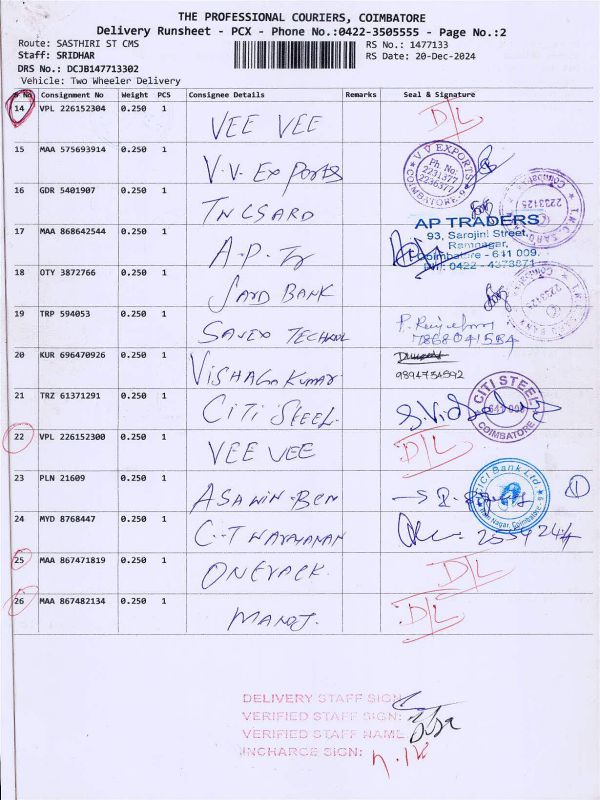 THE PROFESSIONAL COURIERS, COIMBATORE
Delivery Runsheet - PCX - Phone No.:0422-3505555 - Page No.:2
Route: SASTHIRI ST CMS RS No.: 1477133
Staff: SRIDHAR RS Date: 20-Dec-2024
DRS No.: DCJB147713302
Vehicle: Two Wheeler Delivery
S No. Consignment No Weight PCS Consignee Details Remarks Seal & Signature
14 VPL 226152304 0.250 1 VEE VEE D/L
15 MAA 575693914 0.250 1 V.V. Exports
V V EXPORTS Ph No: 2231377 2236377 COIMBATORE
16 GDR 5401907 0.250 1 TNCSARD
2233125
17 MAA 868642544 0.250 1 A.P. Tr
AP TRADERS
93, Sarojini Street,
Ramnagar,
Coimbatore - 641 009.
PH: 0422 - 4373871
18 OTY 3872766 0.250 1 SARD BANK
2233125
19 TRP 594053 0.250 1 SAVEX TECHNOL
7868041554
20 KUR 696470926 0.250 1 VISHAGAN KUMAR
9894754592
21 TRZ 61371291 0.250 1 CITI STEEL.
CITI STEEL COIMBATORE
22 VPL 226152300 0.250 1 VEE VEE D/L
23 PLN 21609 0.250 1 ASAWIN BEN
ICICI Bank Ltd.
24 MYD 8768447 0.250 1 C.T NARAYANAN
25 MAA 867471819 0.250 1 ONEPACK. D/L
26 MAA 867482134 0.250 1 MANOJ. D/L
DELIVERY STAFF SIGN
VERIFIED STAFF SIGN:
VERIFIED STAFF NAME
INCHARGE SIGN: